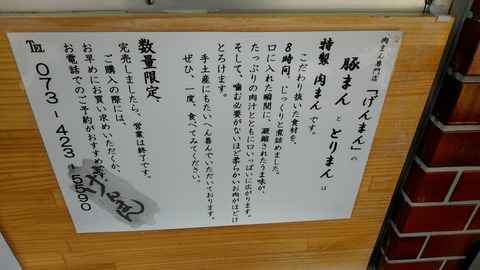 肉まん専門店
「げんまん」の
豚まん と とりまん は
特製 肉まん です。
こだわり抜いた食材を、
8時間、じっくりと煮詰めました。
口に入れた瞬間に、凝縮されたうま味が、
たっぷりの肉汁とともに口いっぱいに広がります。
そして、噛む必要がないほど柔らかいお肉がほどけ
とろけます。
手土産にもたいへん喜んでいただいております。
ぜひ、一度、食べてみてください。
数量限定、
完売しましたら、営業は終了です。
ご購入の際には、
お早めにお買い求めいただくか、
お電話でのご予約がおすすめです。
℡ 073-423-5590